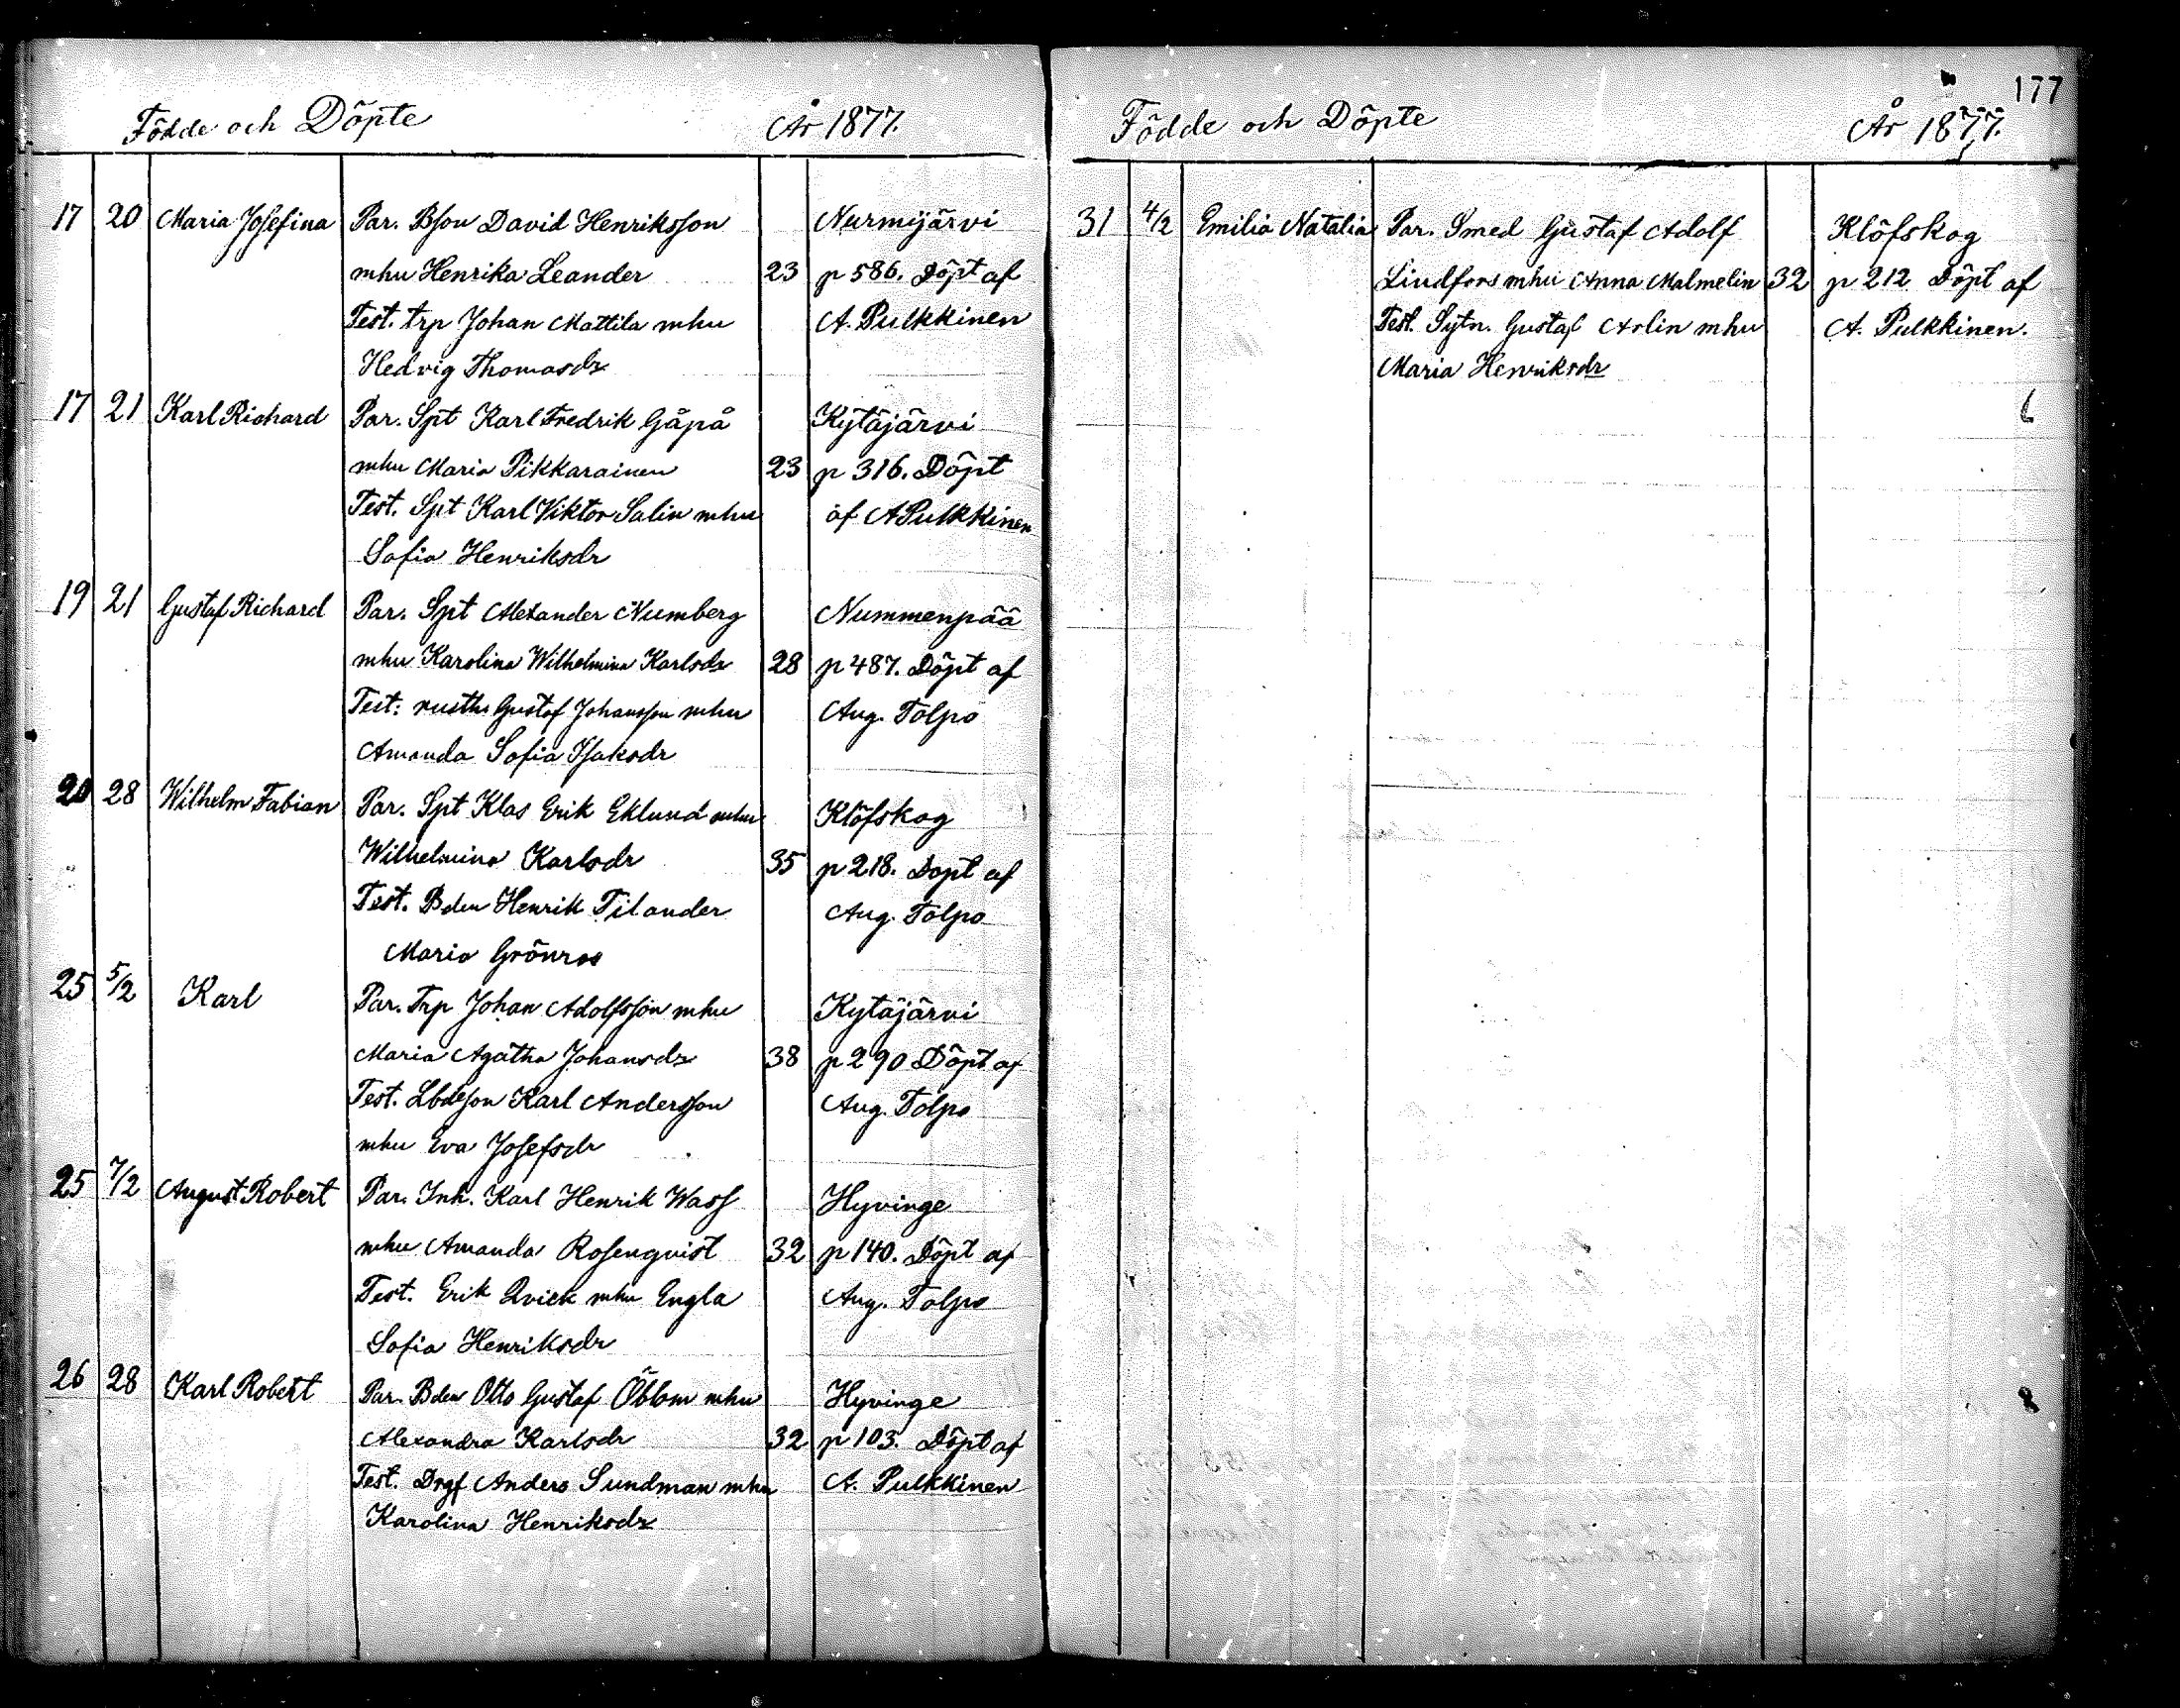 177
Födde och Döpte År 1877.
17 20 Maria Josefina Par. Bson David Henriksson Nurmijärvi
mhu Henrika Leander 23 p 586. Döpt af
Test. trp Johan Mattila mhu A. Pulkkinen
Hedvig Thomasdr
17 21 Karl Richard Par. Spt Karl Fredrik Gåpå Kytäjärvi
mhu Maria Pikkarainen 23 p 316. Döpt
Test. Spt Karl Viktor Salin mhu af A Pulkkinen
Sofia Henriksdr
19 21 Gustaf Richard Par. Spt Alexander Numberg Nummenpää
mhu Karolina Wilhelmina Karlsdr 28 p 487. Döpt af
Test. rusth. Gustaf Johansson mhu Aug. Tolpo
Amanda Sofia Isaksdr
20 28 Wilhelm Fabian Par. Spt Klas Erik Eklund mhu Klöfskog
Wilhelmina Karlsdr 35 p 218. Döpt af
Test. Bden Henrik Tilander Aug. Tolpo
Maria Grönros
25 5/2 Karl Par. Trp Johan Adolfsson mhu Kytäjärvi
Maria Agatha Johansdr 38 p 290 Döpt af
Test. Lbdeson Karl Andersson Aug. Tolpo
mhu Eva Josefsdr
25 7/2 August Robert Par. Inh. Karl Henrik Wass Hyvinge
mhu Amanda Rosenqvist 32 p 140. Döpt af
Test. Erik Qvick mhu Engla Aug. Tolpo
Sofia Henriksdr
26 28 Karl Robert Par. Bden Otto Gustaf Öblom mhu Hyvinge
Alexandra Karlsdr 32 p 103. Döpt af
Test. Drgf Anders Sundman mhu A. Pulkkinen
Karolina Henriksdr
Födde och Döpte År 1877.
31 4/2 Emilia Natalia Par. Smed Gustaf Adolf Klöfskog
Lindfors mhu Anna Malmelin 32 p 212 Döpt af
Test. Sytn. Gustaf Arlin mhu A. Pulkkinen.
Maria Henriksdr